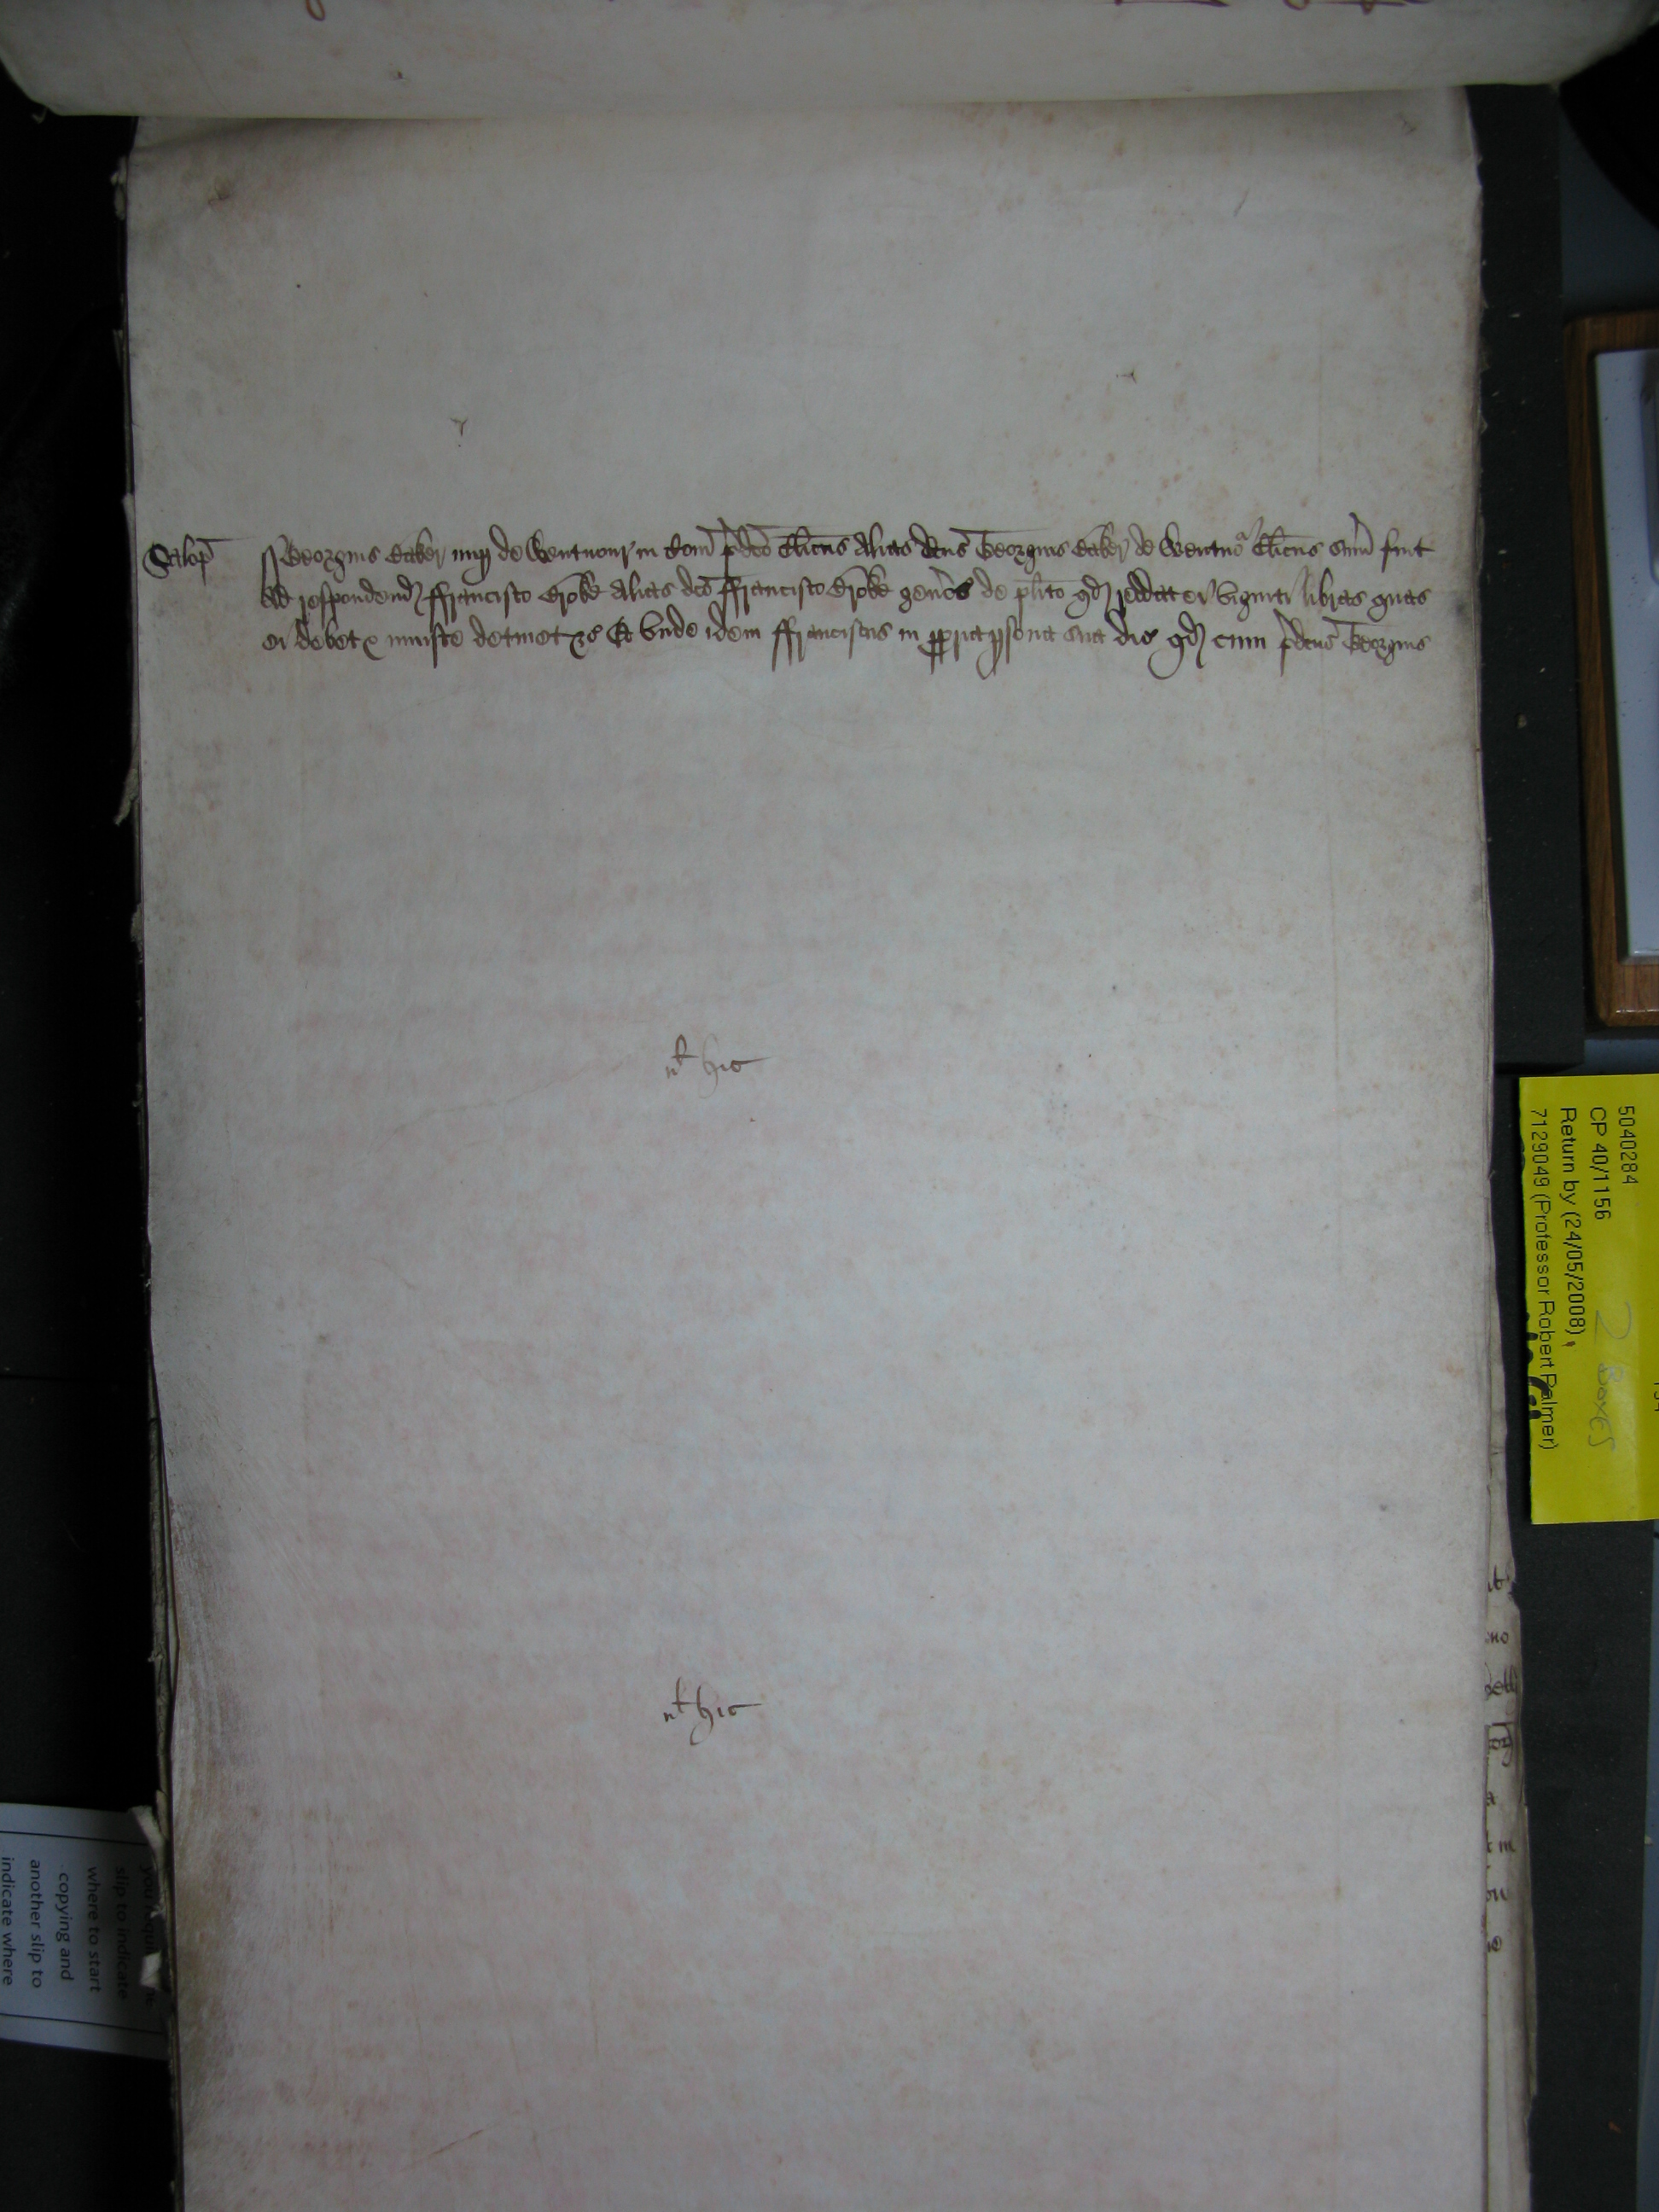 Salop̄ ss Georgius Baker nup de Wentnour in Com̄ p̄dc̄o Cl̄icus Alias dc̄us Georgius Baker de Wentnor Cl̄icus sum̄ fuit
Ad respondend ffrancisco Croke Alias dc̄o ffrancisco Croke gen̄os de pl̄ito qd reddat ei viginti libras quas
ei debet & iniuste detinet &c Et vnde idem ffranciscus in ppria psona sua dic qd cum p̄dcus Georgius
nl hic
nl hic
5040284
CP 40/1156
Return by (24/05/2008)
7129049 (Professor Robert Palmer)
2 Boxes
slip to indicate
where to start
copying and
another slip to
indicate where